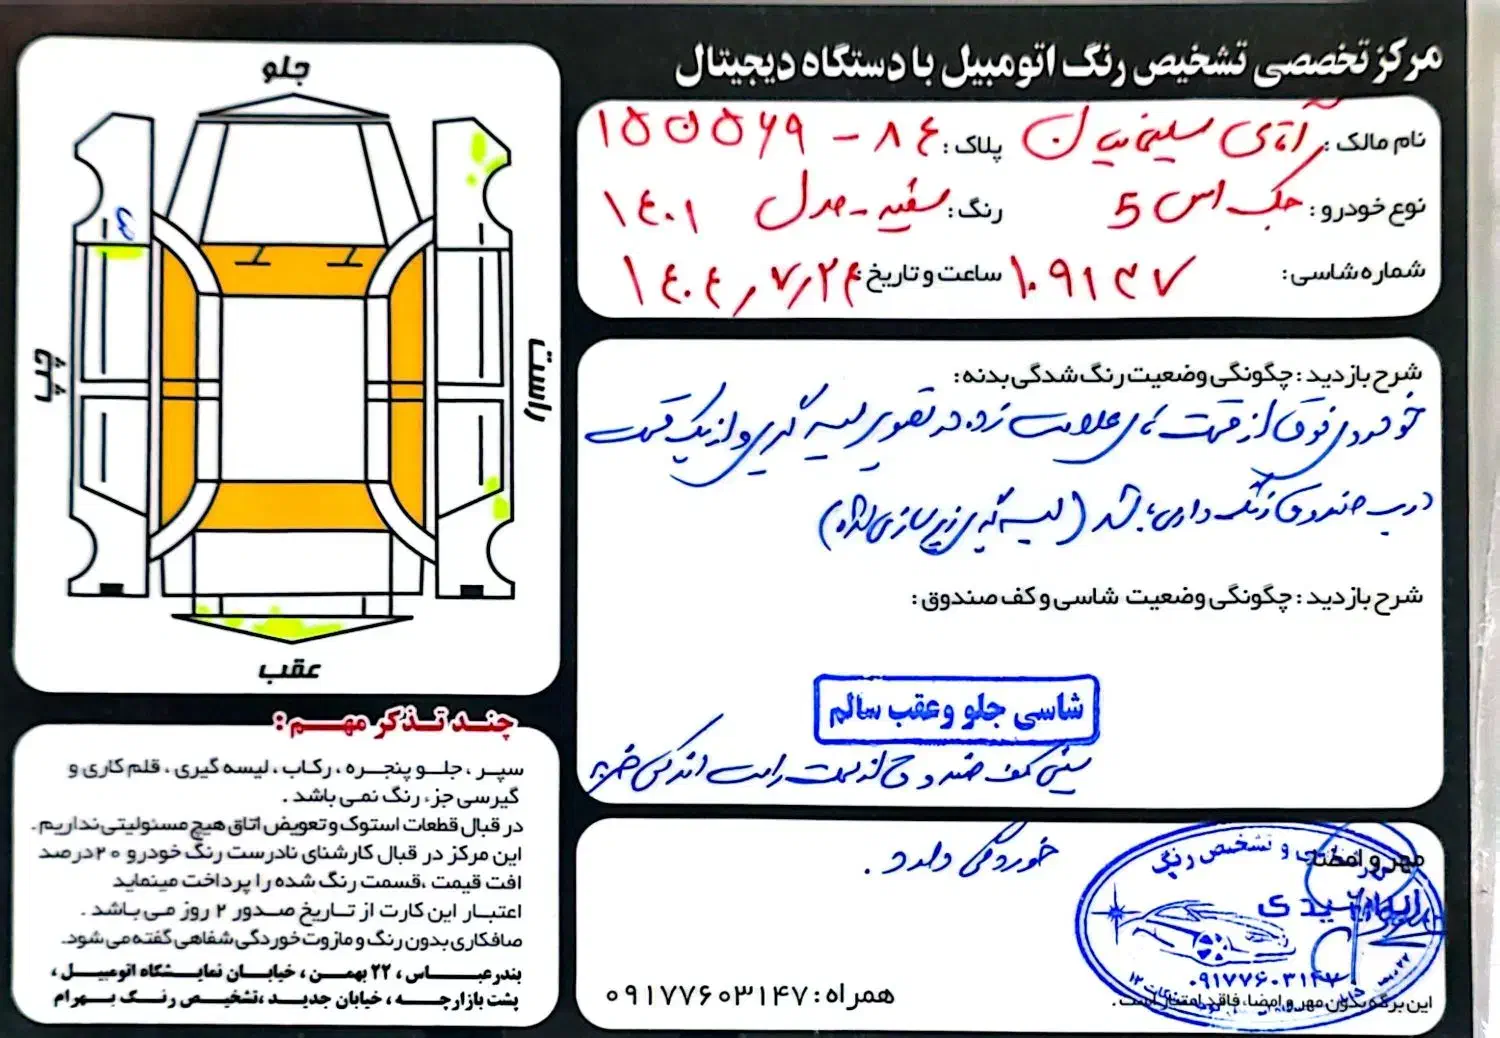 مرکز تخصصی تشخیص رنگ اتومبیل با دستگاه دیجیتال
نام مالک: آقای سلیمانیان پلاک: ۸۴ - ۱۵۵۵۶۹
نوع خودرو: جک اس 5 رنگ: سفید - مدل ۱۴۰۱
شماره شاسی: ۱۰۹۱۴۷ ساعت و تاریخ: ۱۴۰۴/۷/۲۴
شرح بازدید: چگونگی وضعیت رنگ شدگی بدنه:
خودروی فوق از قسمت های علامت زده در تصویر لیسه گیری و از یک قسمت
درب صندوق رنگ دار می باشد (لیسه گیری زیر سازی شده)
شرح بازدید: چگونگی وضعیت شاسی و کف صندوق:
شاسی جلو و عقب سالم
سینی کف صندوق از سمت راست اندکی ضربه
خوردگی دارد.
مهر و امضا
تشخیص رنگ
۰۹۱۷۷۶۰۳۱۴۷
همراه: ۰۹۱۷۷۶۰۳۱۴۷
این برگه بدون مهر و امضا، فاقد اعتبار است.
جلو
چپ
راست
عقب
چند تذکر مهم:
سپر، جلو پنجره، رکاب، لیسه گیری، قلم کاری و
گیرسی جزء رنگ نمی باشد.
در قبال قطعات استوک و تعویض اتاق هیچ مسئولیتی نداریم.
این مرکز در قبال کارشنای نادرست رنگ خودرو ۲۰درصد
افت قیمت، قسمت رنگ شده را پرداخت مینماید
اعتبار این کارت از تاریخ صدور ۲ روز می باشد.
صافکاری بدون رنگ و مازوت خوردگی شفاهی گفته می شود.
بندرعباس، ۲۲ بهمن، خیابان نمایشگاه اتومبیل،
پشت بازارچه، خیابان جدید، تشخیص رنگ بهرام